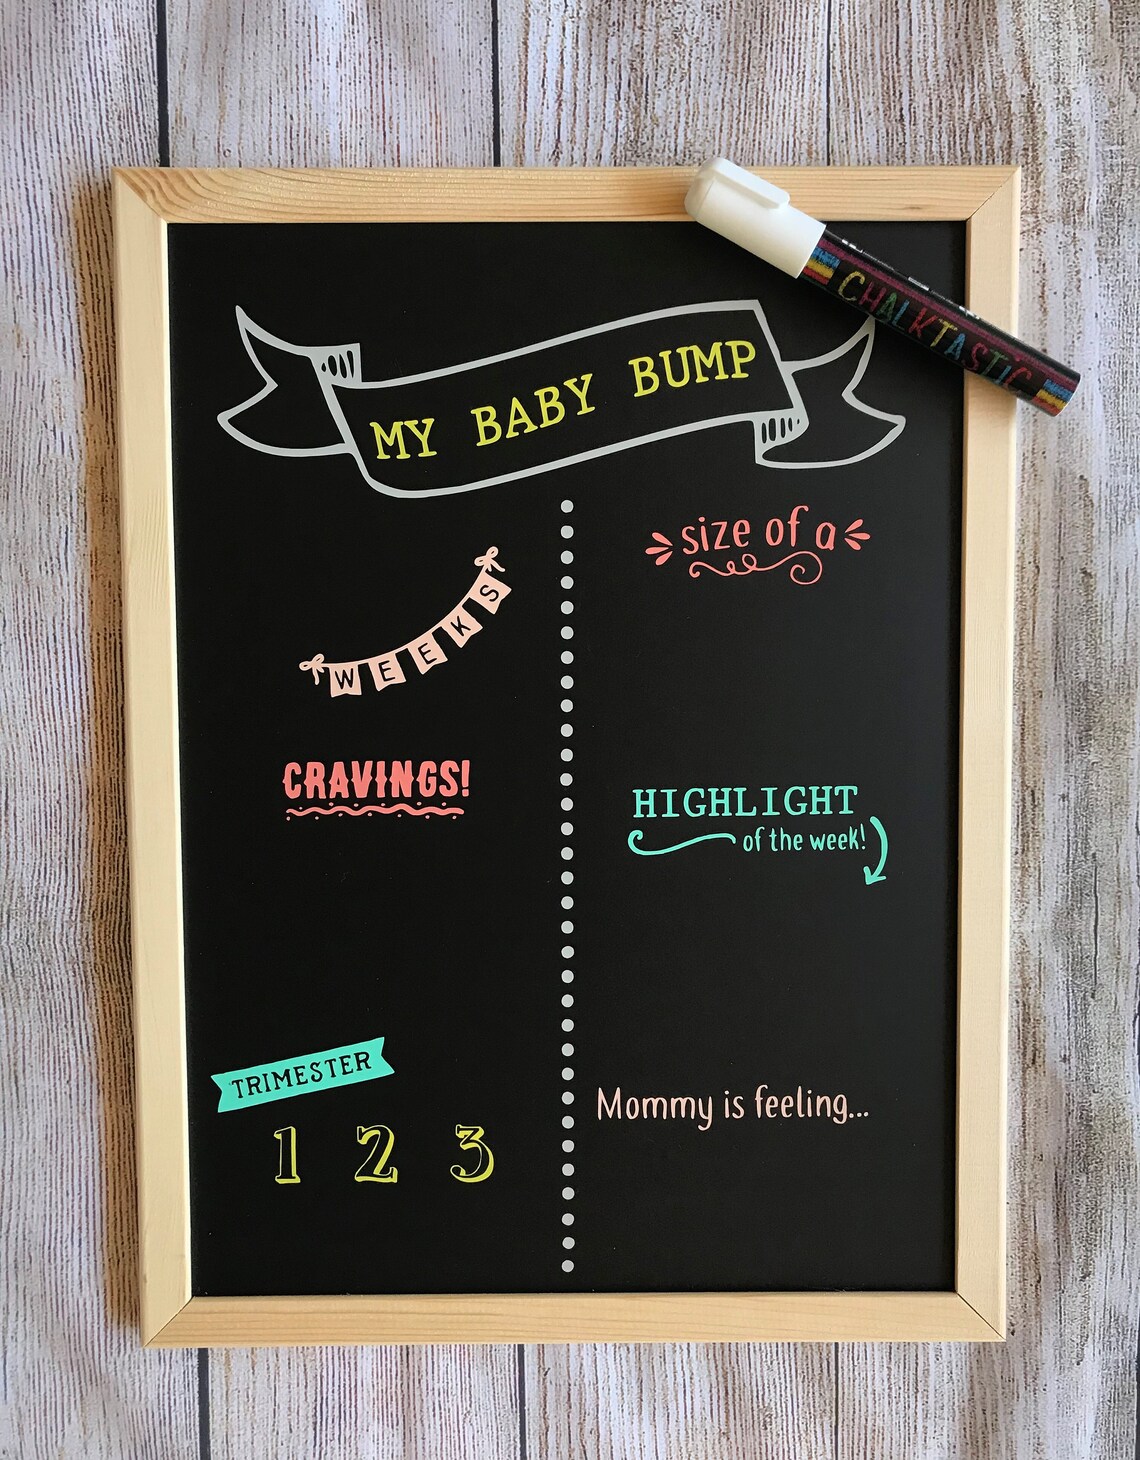 MY BABY BUMP
CHALKTASTIC
WEEKS
size of a
CRAVINGS!
HIGHLIGHT
of the week!
TRIMESTER
1 2 3
Mommy is feeling...